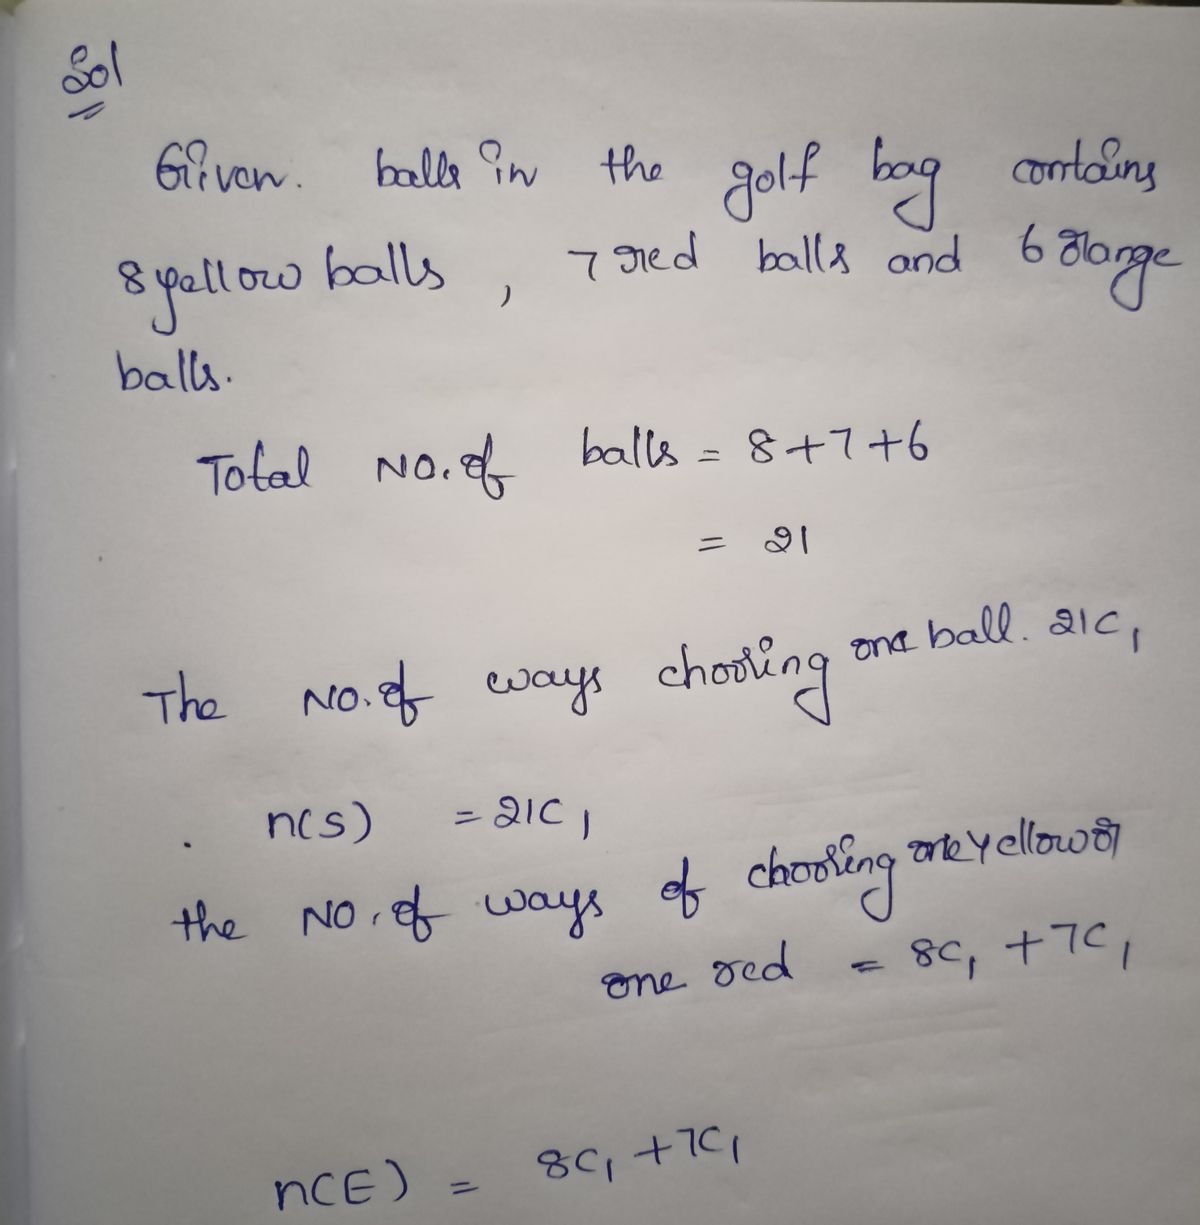 Sol
Given. balls in the golf bag contains
8 yellow balls, 7 red balls and 6 orange
balls.
Total No. of balls = 8+7+6
= 21
The No. of ways choosing one ball. 21C₁
n(S) = 21C₁
the No. of ways of choosing one yellow or
one red = 8C₁ + 7C₁
n(E) = 8C₁ + 7C₁